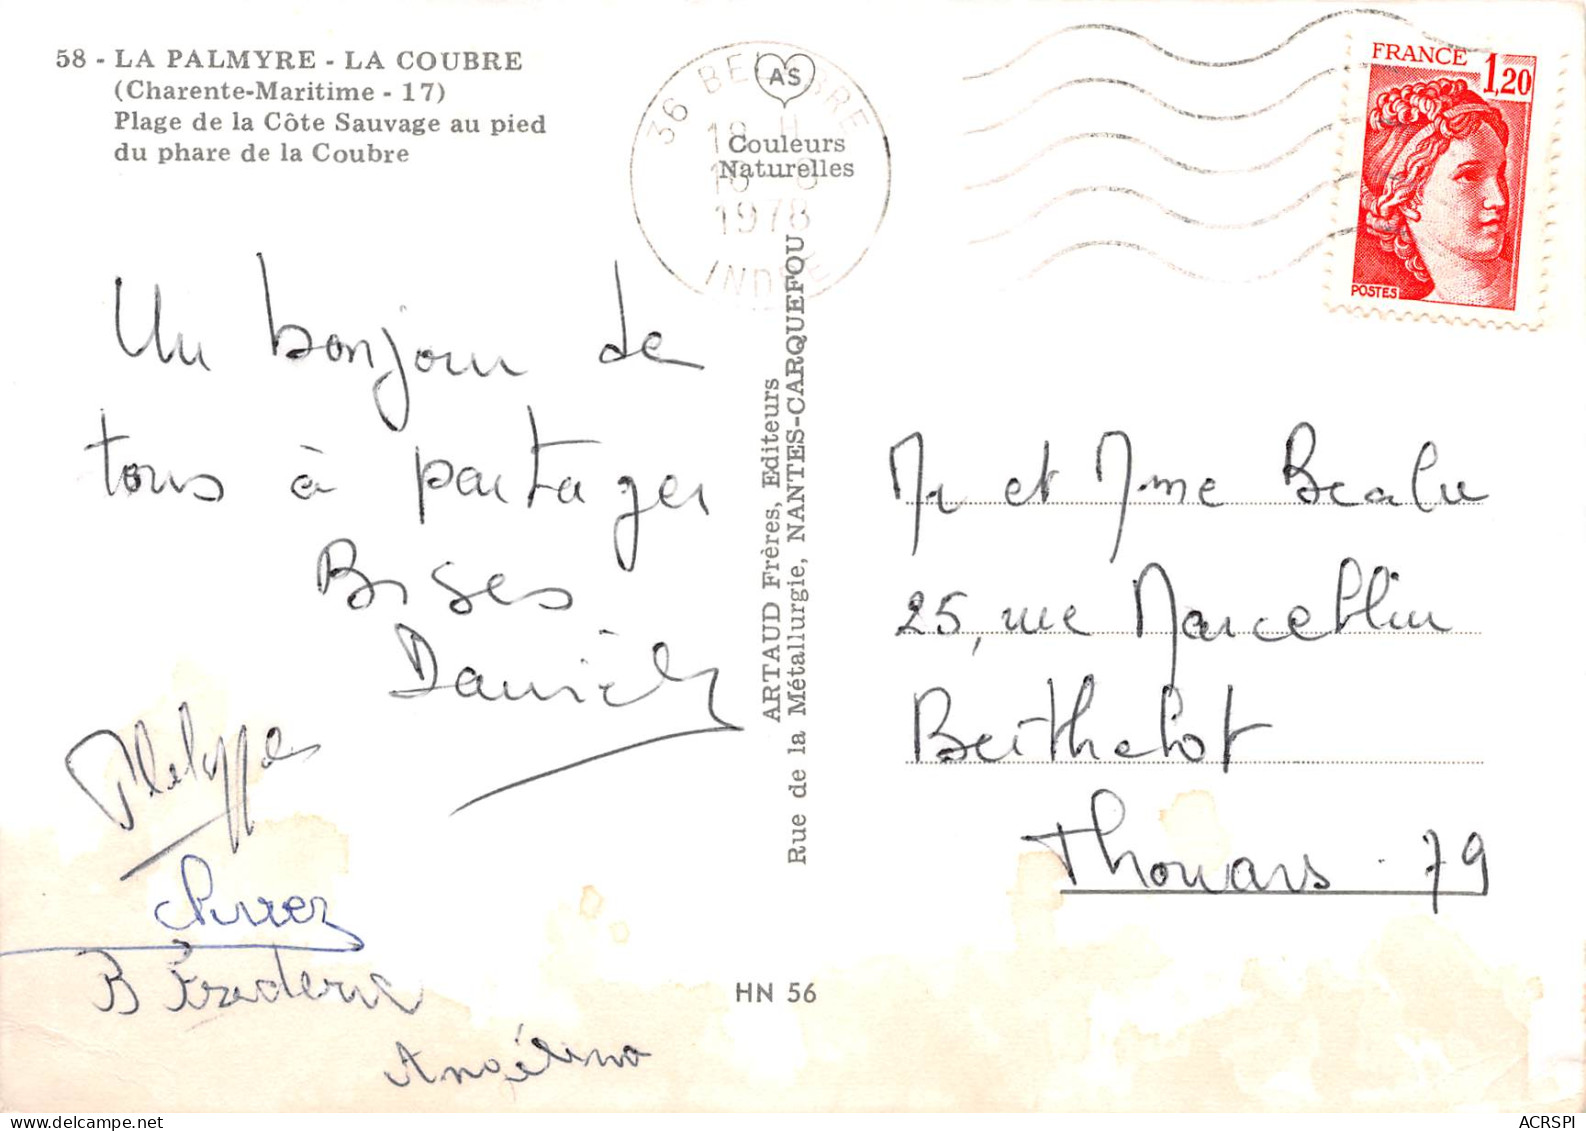 58 - LA PALMYRE - LA COUBRE
(Charente-Maritime - 17)
Plage de la Côte Sauvage au pied
du phare de la Coubre
AS
Couleurs
Naturelles
36 BEL BRE
18 H
16 8
1978
INDRE
FRANCE 1,20
POSTES
Un bonjour de
tous à partager
Bises
Daniel
Philippe
B Frederic
Angélina
ARTAUD Frères, Editeurs
Rue de la Métallurgie, NANTES-CARQUEFOU
Mr et Mme
25, rue Marcellin
Berthelot
Thouars . 79
HN 56
delcampe.net
ACRSPI